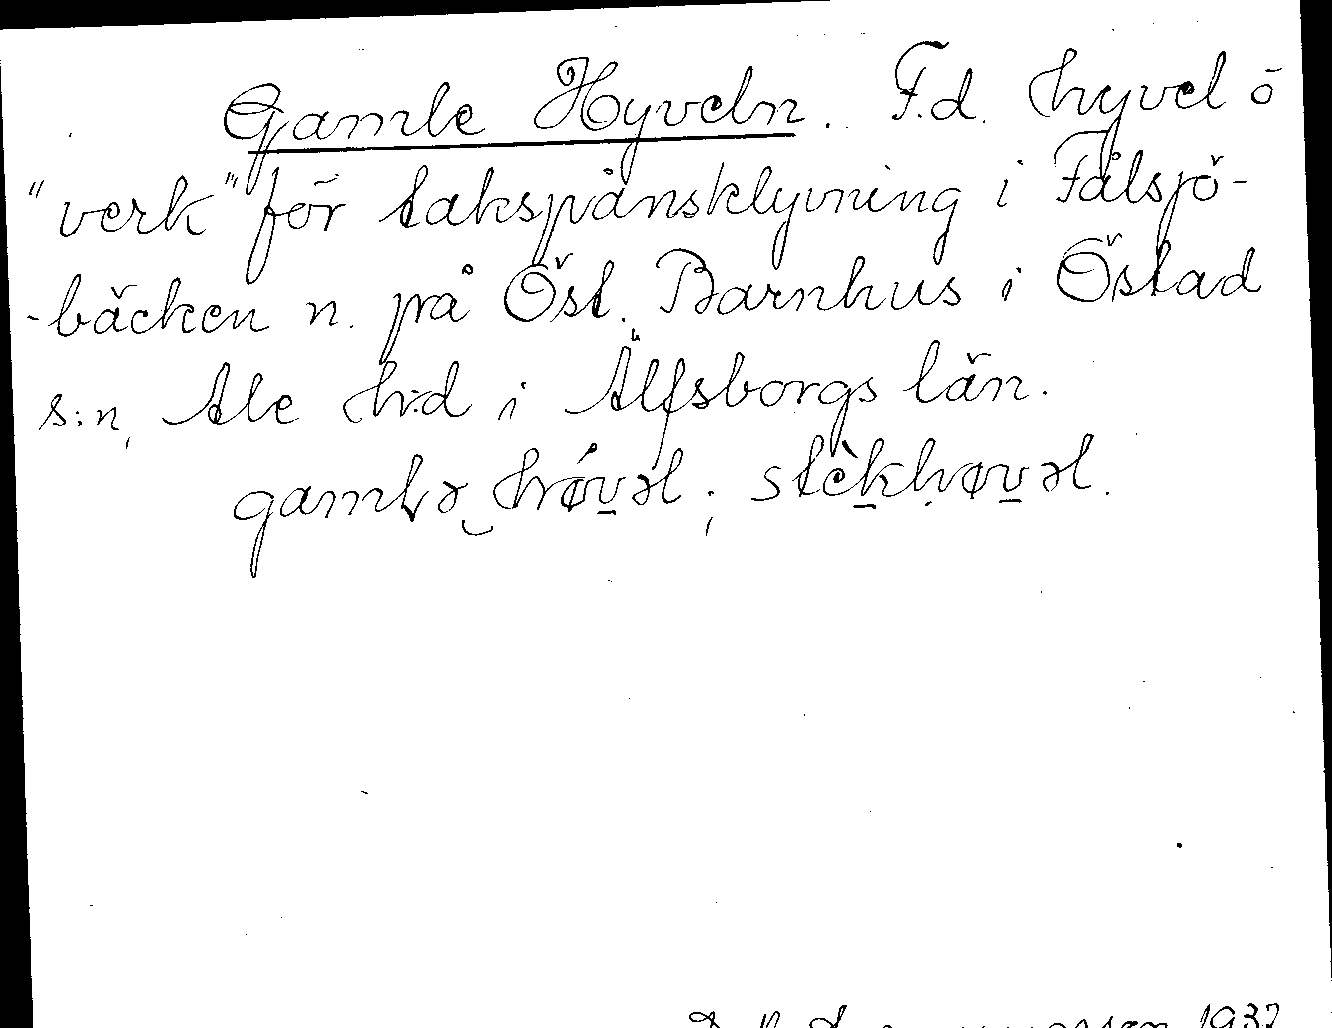 Gamle Hyveln. F.d. hyvel ō
"verk" för takspånsklyvning i Fålsjö-
-bäcken n. på Öst. Barnhus i Östad
s:n, Ale h:d i Älfsborgs län.
gamlə høvəl ; stèkhøvəl.
1937